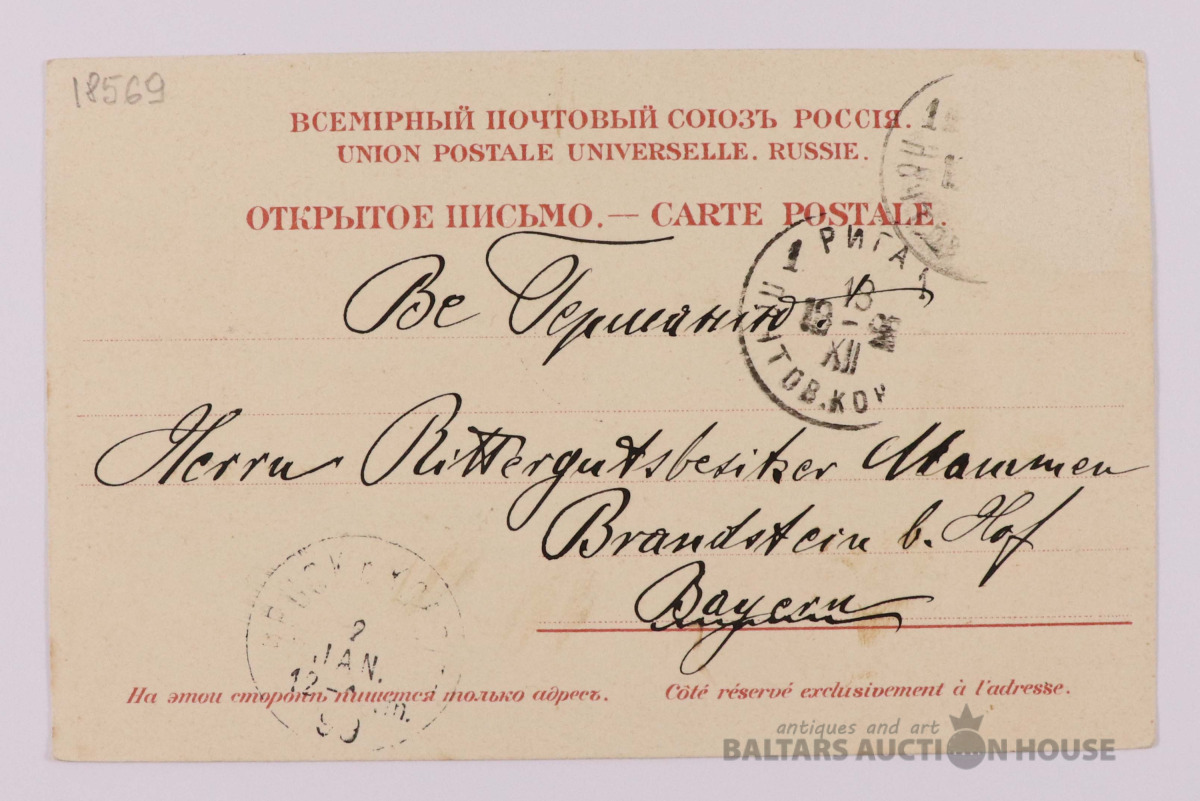 18569
ВСЕМІРНЫЙ ПОЧТОВЫЙ СОЮЗЪ РОССІЯ.
UNION POSTALE UNIVERSELLE. RUSSIE.
ОТКРЫТОЕ ПИСЬМО. — CARTE POSTALE.
1 РИГА 1
13
XII
ПОЧТОВ. КОН
Ве Германію
Herrn Rittergutsbesitzer Mammen
Brandstein b. Hof
Bayern
2
JAN.
12
На этои сторонѣ пишется только адресъ. Côté réservé exclusivement à l'adresse.
antiques and art
BALTARS AUCTION HOUSE